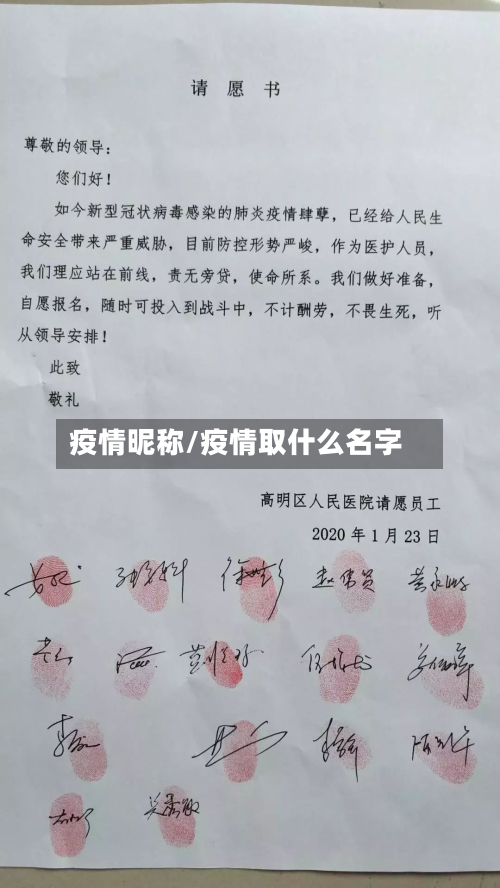 请愿书
尊敬的领导：
您们好！
如今新型冠状病毒感染的肺炎疫情肆孽，已经给人民生
命安全带来严重威胁，目前防控形势严峻，作为医护人员，
我们理应站在前线，责无旁贷，使命所系。我们做好准备，
自愿报名，随时可投入到战斗中，不计酬劳，不畏生死，听
从领导安排！
此致
敬礼
疫情昵称/疫情取什么名字
高明区人民医院请愿员工
2020年1月23日